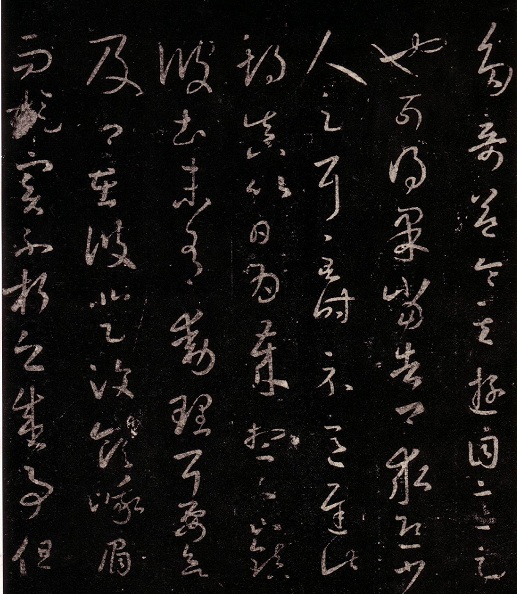 多奇益令其遊目意足
也可得果當告卿求迎少
人足耳至時示意遲此
期真以日為歲想足下鎮
彼土未有動理耳要欲
及卿在彼登汶領峨眉
而旋實不朽之盛事但